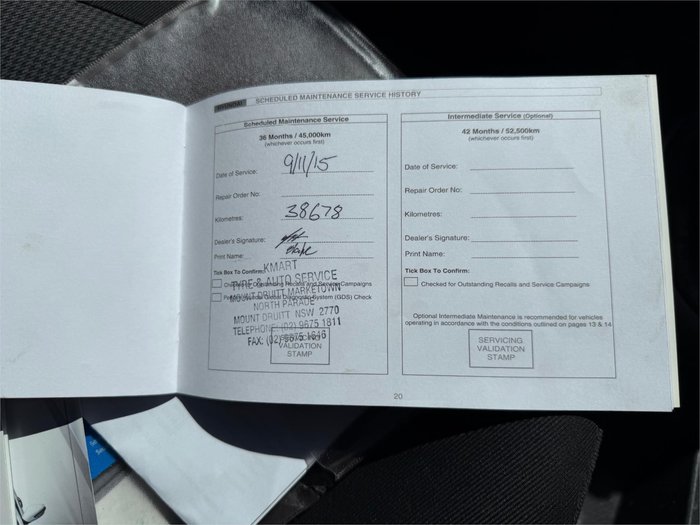 HYUNDAI SCHEDULED MAINTENANCE SERVICE HISTORY
Scheduled Maintenance Service
36 Months / 45,000km
(whichever occurs first)
Date of Service: 9/11/15
Repair Order No:
Kilometres: 38678
Dealer's Signature:
Print Name:
Tick Box To Confirm:
Checked for Outstanding Recalls and Service Campaigns
Performed Global Diagnostic System (GDS) Check
KMART
TYRE & AUTO SERVICE
MOUNT DRUITT MARKETOWN
NORTH PARADE
MOUNT DRUITT NSW 2770
TELEPHONE: (02) 9675 1811
FAX: (02) 9675 1616
SERVICING
VALIDATION
STAMP
Intermediate Service (Optional)
42 Months / 52,500km
(whichever occurs first)
Date of Service:
Repair Order No:
Kilometres:
Dealer's Signature:
Print Name:
Tick Box To Confirm:
Checked for Outstanding Recalls and Service Campaigns
Optional Intermediate Maintenance is recommended for vehicles
operating in accordance with the conditions outlined on pages 13 & 14
SERVICING
VALIDATION
STAMP
20